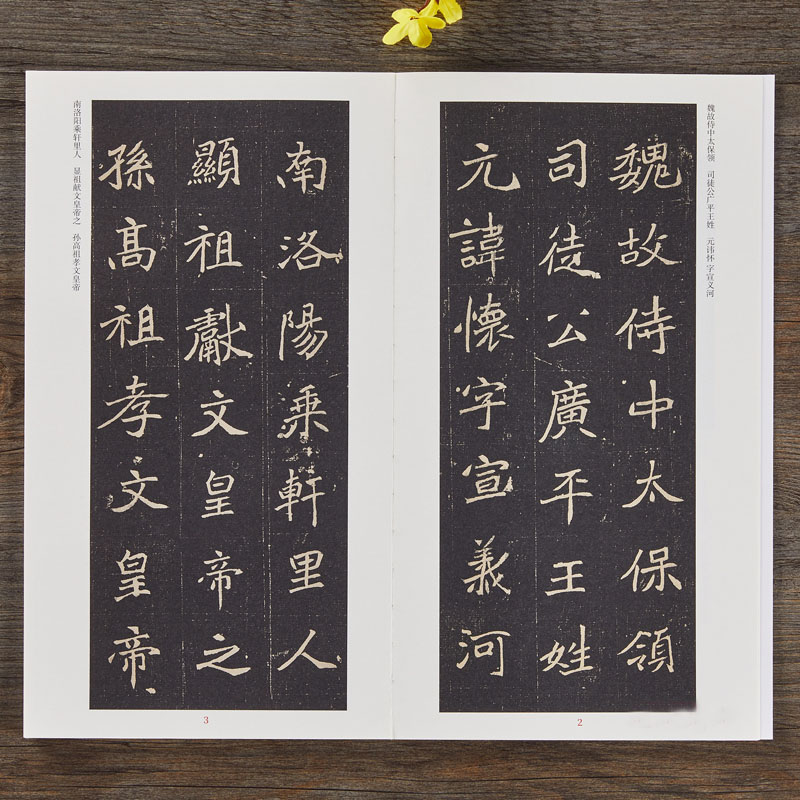 魏故侍中太保领 司徒公广平王姓 元讳怀字宣义河
魏故侍中太保領
司徒公廣平王姓
元諱懷字宣義河
2
南洛阳乘轩里人 显祖献文皇帝之 孙高祖孝文皇帝
南洛陽乘軒里人
顯祖獻文皇帝之
孫高祖孝文皇帝
3